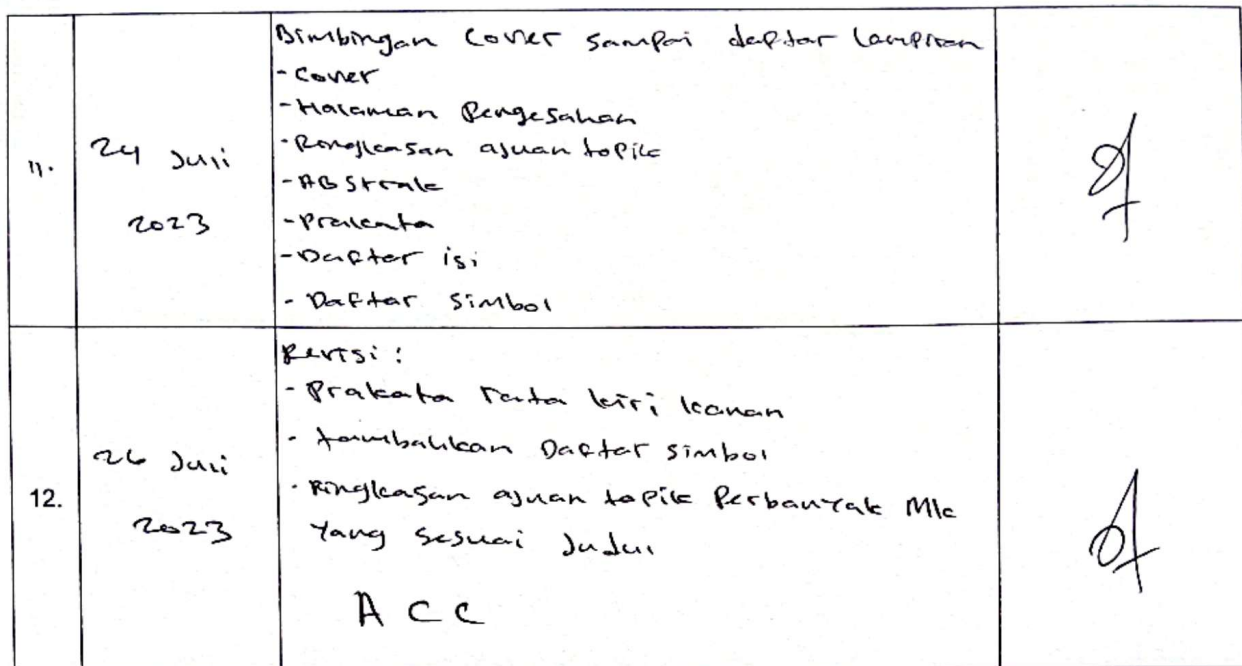 11.
24 Juli
2023
Bimbingan Cover sampai daftar lampiran
- Cover
- Halaman Pengesahan
- Ringkasan ajuan topik
- ABStrak
- Prakata
- Daftar isi
- Daftar Simbol
12.
26 Juli
2023
Revisi :
- Prakata rata kiri kanan
- tambahkan Daftar simbol
- Ringkasan ajuan topik Perbanyak Mk
Yang sesuai Judul
ACC